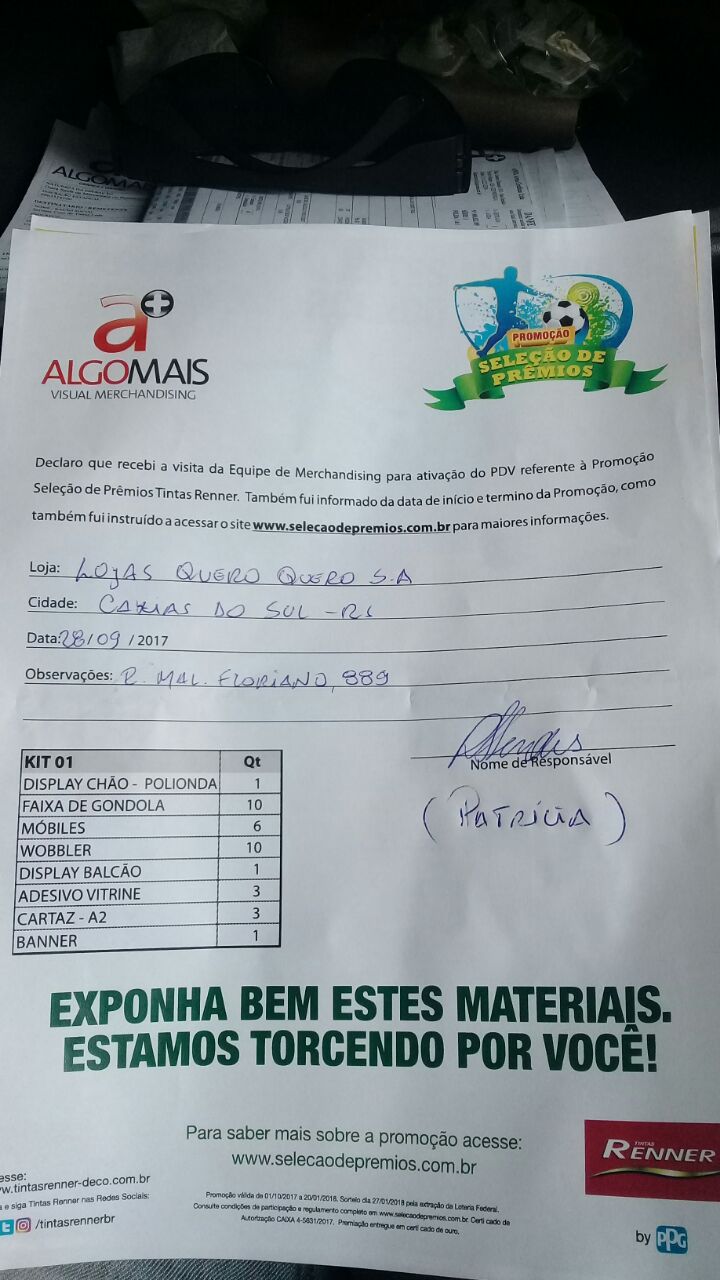 ALGOMAIS
a+
ALGOMAIS
VISUAL MERCHANDISING
PROMOÇÃO
SELEÇÃO DE
PRÊMIOS
Declaro que recebi a visita da Equipe de Merchandising para ativação do PDV referente à Promoção
Seleção de Prêmios Tintas Renner. Também fui informado da data de início e termino da Promoção, como
também fui instruído a acessar o site www.selecaodepremios.com.br para maiores informações.
Loja: LOJAS QUERO QUERO S.A
Cidade: CAXIAS DO SUL - RS
Data: 28/09 / 2017
Observações: R. MAL. FLORIANO, 889
Nome de Responsável
(PATRÍCIA)
KIT 01 Qt
DISPLAY CHÃO - POLIONDA 1
FAIXA DE GONDOLA 10
MÓBILES 6
WOBBLER 10
DISPLAY BALCÃO 1
ADESIVO VITRINE 3
CARTAZ - A2 3
BANNER 1
EXPONHA BEM ESTES MATERIAIS.
ESTAMOS TORCENDO POR VOCÊ!
Para saber mais sobre a promoção acesse:
www.selecaodepremios.com.br
esse:
w.tintasrenner-deco.com.br
a e siga Tintas Renner nas Redes Sociais:
/tintasrennerbr
Promoção válida de 01/10/2017 a 20/01/2018. Sorteio dia 27/01/2018 pela extração da Loteria Federal.
Consulte condições de participação e regulamento completo em www.selecaodepremios.com.br. Certi cado de
Autorização CAIXA 4-5831/2017. Premiação entregue em certi cado de ouro.
TINTAS
RENNER
by PPG